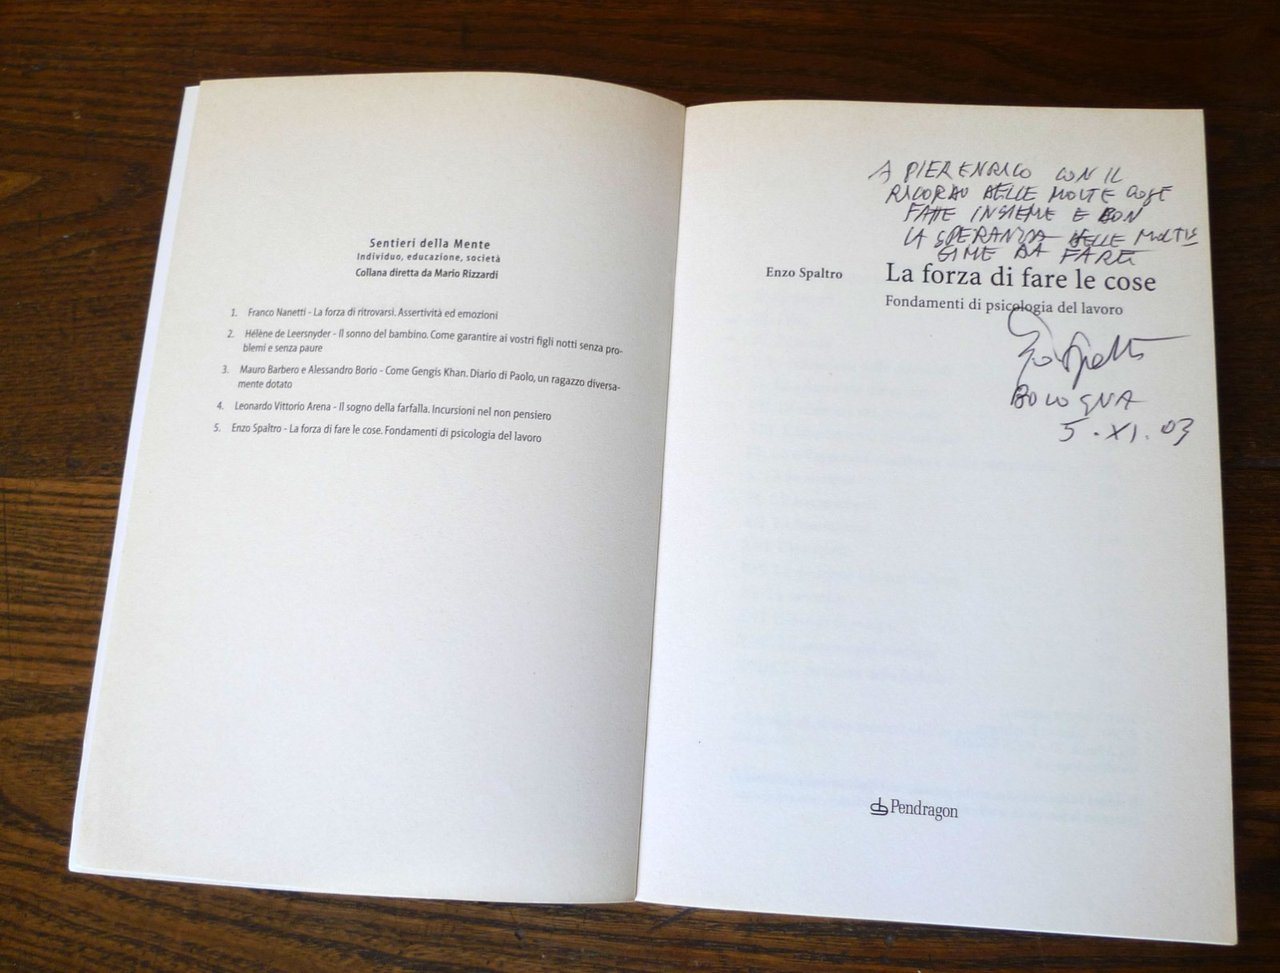 Sentieri della Mente
Individuo, educazione, società
Collana diretta da Mario Rizzardi
1. Franco Nanetti - La forza di ritrovarsi. Assertività ed emozioni
2. Hélène de Leersnyder - Il sonno del bambino. Come garantire ai vostri figli notti senza pro-
blemi e senza paure
3. Mauro Barbero e Alessandro Borio - Come Gengis Khan. Diario di Paolo, un ragazzo diversa-
mente dotato
4. Leonardo Vittorio Arena - Il sogno della farfalla. Incursioni nel non pensiero
5. Enzo Spaltro - La forza di fare le cose. Fondamenti di psicologia del lavoro
A PIERENRICO CON IL
RICORDO DELLE MOLTE COSE
FATTE INSIEME E CON
LA SPERANZA DELLE MOLTIS
SIME DA FARE
Enzo Spaltro
La forza di fare le cose
Fondamenti di psicologia del lavoro
BOLOGNA
5.XI.03
Pendragon